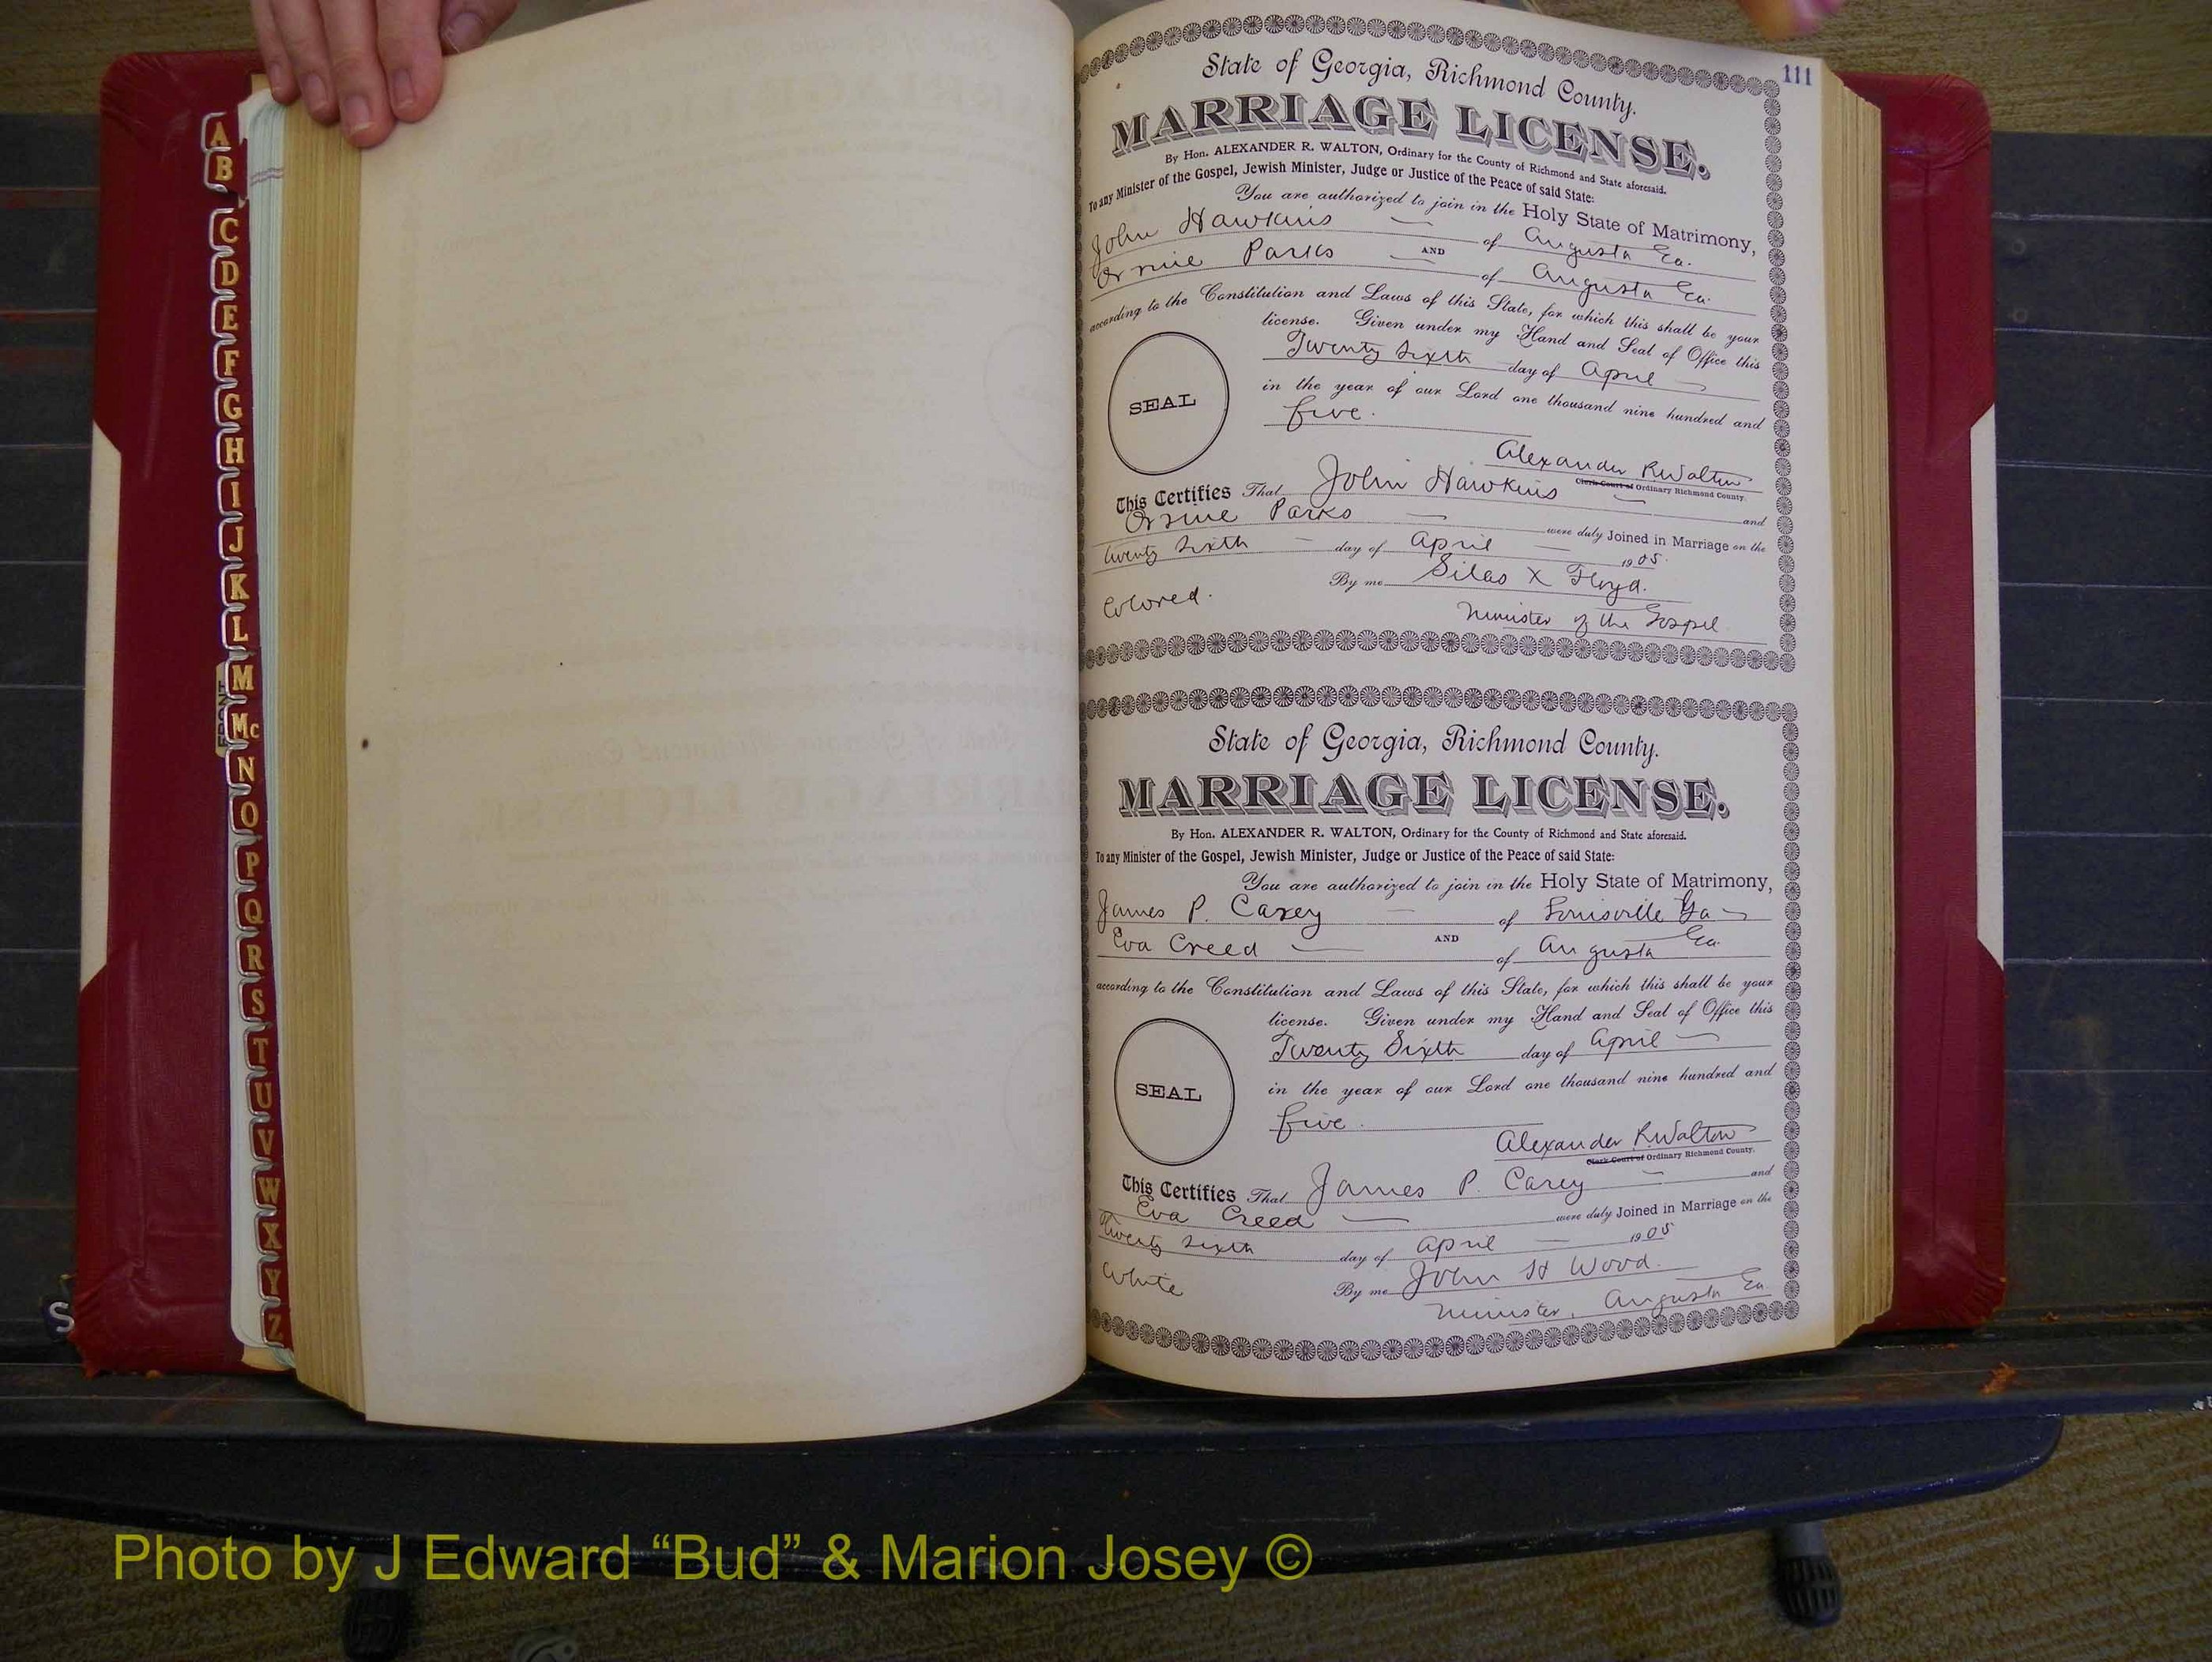 A
B
C
D
E
F
G
H
I
J
K
L
M
Mc
N
O
P
Q
R
S
T
U
V
W
X
Y
Z
111
State of Georgia, Richmond County.
MARRIAGE LICENSE.
By Hon. ALEXANDER R. WALTON, Ordinary for the County of Richmond and State aforesaid.
To any Minister of the Gospel, Jewish Minister, Judge or Justice of the Peace of said State:
You are authorized to join in the Holy State of Matrimony,
John Hawkins of Augusta Ga.
AND
Parks of Augusta Ga.
according to the Constitution and Laws of this State, for which this shall be your
license. Given under my Hand and Seal of Office this
Twenty Sixth day of April
in the year of our Lord one thousand nine hundred and
five.
SEAL
Alexander R Walton
Clerk Court of Ordinary Richmond County.
This Certifies That John Hawkins and
Parks were duly Joined in Marriage on the
twenty sixth day of April 1905.
By me Silas X Floyd.
Colored. Minister of the Gospel
State of Georgia, Richmond County.
MARRIAGE LICENSE.
By Hon. ALEXANDER R. WALTON, Ordinary for the County of Richmond and State aforesaid.
To any Minister of the Gospel, Jewish Minister, Judge or Justice of the Peace of said State:
You are authorized to join in the Holy State of Matrimony,
James P. Carey of Louisville Ga
AND
Eva Creed of Augusta Ga.
according to the Constitution and Laws of this State, for which this shall be your
license. Given under my Hand and Seal of Office this
Twenty Sixth day of April
in the year of our Lord one thousand nine hundred and
five.
SEAL
Alexander R Walton
Clerk Court of Ordinary Richmond County.
This Certifies That James P. Carey and
Eva Creed were duly Joined in Marriage on the
twenty sixth day of April 1905
By me John H Wood.
White Minister, Augusta Ga
Photo by J Edward “Bud” & Marion Josey ©